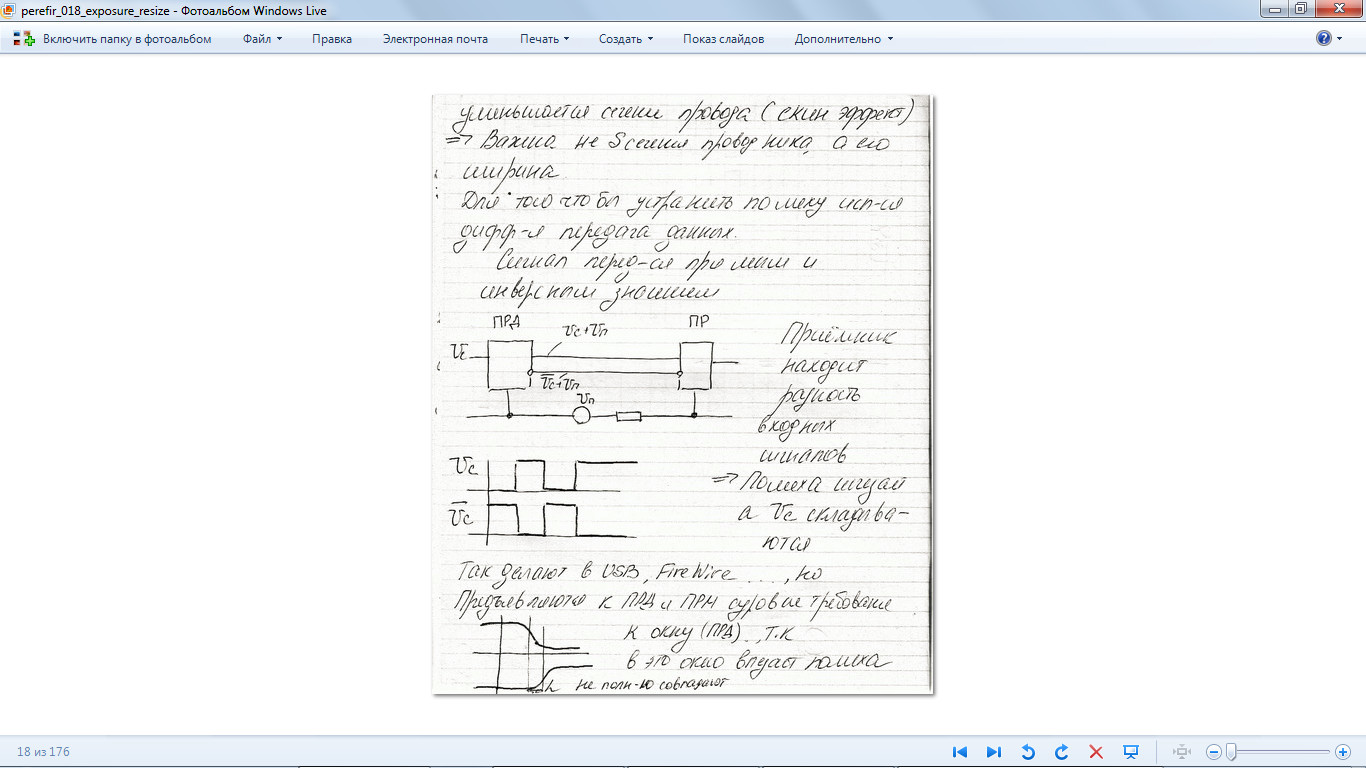 perefir_018_exposure_resize - Фотоальбом Windows Live
Включить папку в фотоальбом Файл Правка Электронная почта Печать Создать Показ слайдов Дополнительно
уменьшается сечени провода (скин эффект)
=> Важна не S сечения проводника, а его
ширина
Для того что бы устранить помеху исп-ся
дифф-я передача данных.
Сигнал перед-ся прямым и
инверсным значением
ПРД
ПР
Uc
Uc+Uп
U̅c+Uп
Uп
Приёмник
находит
разность
входных
сигналов
Uc
U̅c
=> Помеха
а Uc складыва-
ются
Так делают в USB, FireWire ..., но
Предъявляются к ПРД и ПРМ суровые требование
к окну (ПРД) .., т.к
в это окно помеха
не полн-ю совпадают
18 из 176